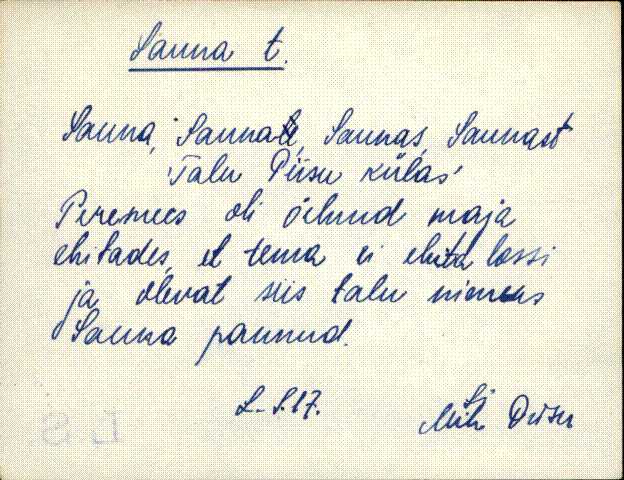 Sauna t.
Sauna, Saunale, Saunas, Saunast
'Talu Piisu külas'
Peremees oli öelnud maja
ehitades, et tema ei ehita lossi
ja olevat siis talu nimeks
Sauna pannud.
L-S.17.
Piisu